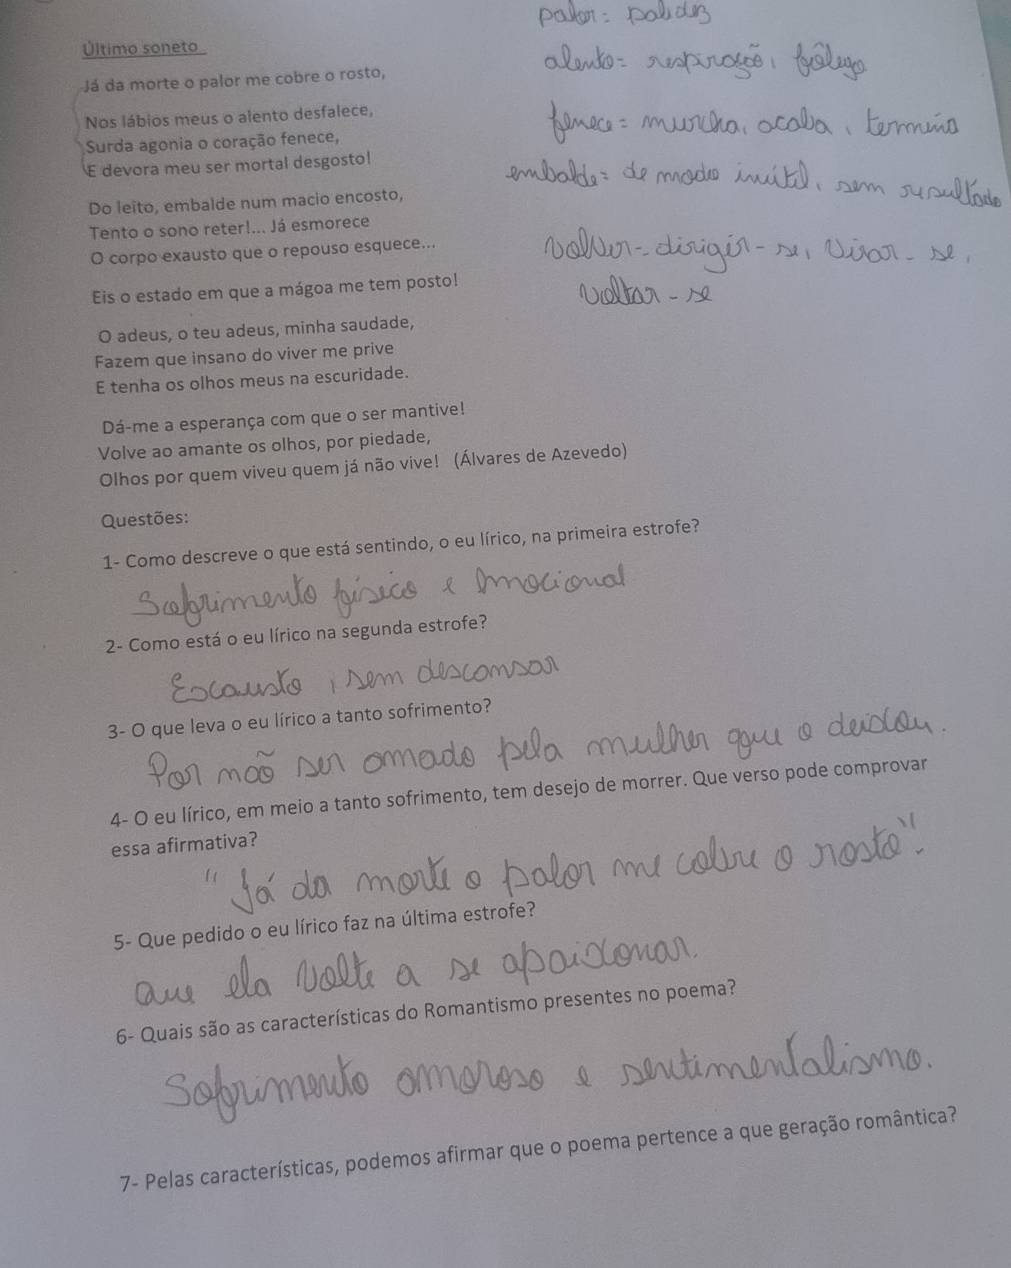 palor: palidez
Último soneto
alento= respiração, fôlego
Já da morte o palor me cobre o rosto,
Nos lábios meus o alento desfalece,
fenece= murcha, acaba, termina
Surda agonia o coração fenece,
E devora meu ser mortal desgosto!
embalde= de modo inútil, sem resultado
Do leito, embalde num macio encosto,
Tento o sono reter!... Já esmorece
O corpo exausto que o repouso esquece...
volver- dirigir-se, virar-se,
voltar-se
Eis o estado em que a mágoa me tem posto!
O adeus, o teu adeus, minha saudade,
Fazem que insano do viver me prive
E tenha os olhos meus na escuridade.
Dá-me a esperança com que o ser mantive!
Volve ao amante os olhos, por piedade,
Olhos por quem viveu quem já não vive! (Álvares de Azevedo)
Questões:
1- Como descreve o que está sentindo, o eu lírico, na primeira estrofe?
Sofrimento físico e emocional
2- Como está o eu lírico na segunda estrofe?
Escausto, sem descansar
3- O que leva o eu lírico a tanto sofrimento?
Por não ser amado pela mulher que o deidou.
4- O eu lírico, em meio a tanto sofrimento, tem desejo de morrer. Que verso pode comprovar
essa afirmativa?
"Já da morte o palor me cobre o rosto".
5- Que pedido o eu lírico faz na última estrofe?
Que ela volte a se apaixonar.
6- Quais são as características do Romantismo presentes no poema?
Sofrimento amoroso e sentimentalismo.
7- Pelas características, podemos afirmar que o poema pertence a que geração romântica?